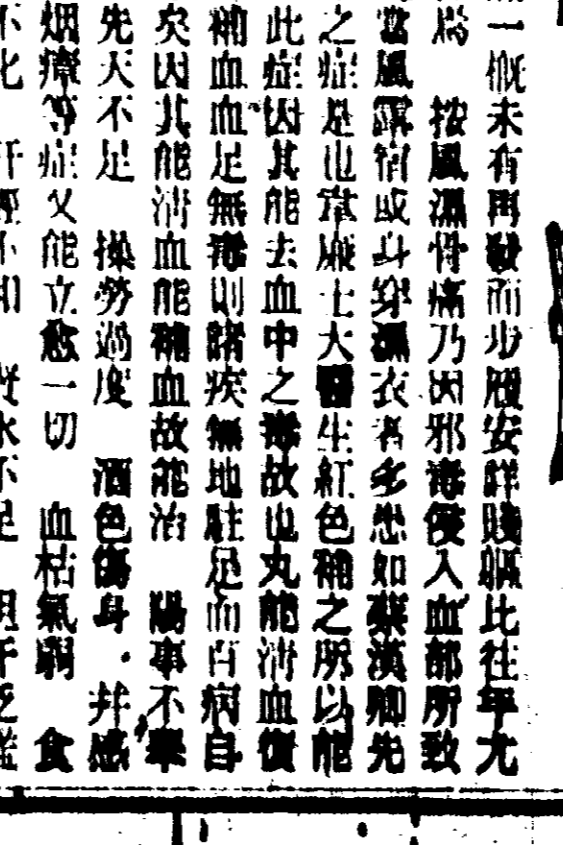 一概未有再發而步履安詳賤軀比往年尤
為 按風濕骨痛乃因邪毒侵入血部所致
當風露宿或身穿濕衣者多患如蔡漢卿先
之症是也韋廉士大醫生紅色補之所以能
此症因其能去血中之毒故也丸能清血復
補血血足無毒則諸疾無地駐足而百病自
矣因其能清血能補血故能治 陽事不舉
先天不足 操勞過度 酒色傷身 并感
烟癮等症又能立愈一切 血枯氣弱 食